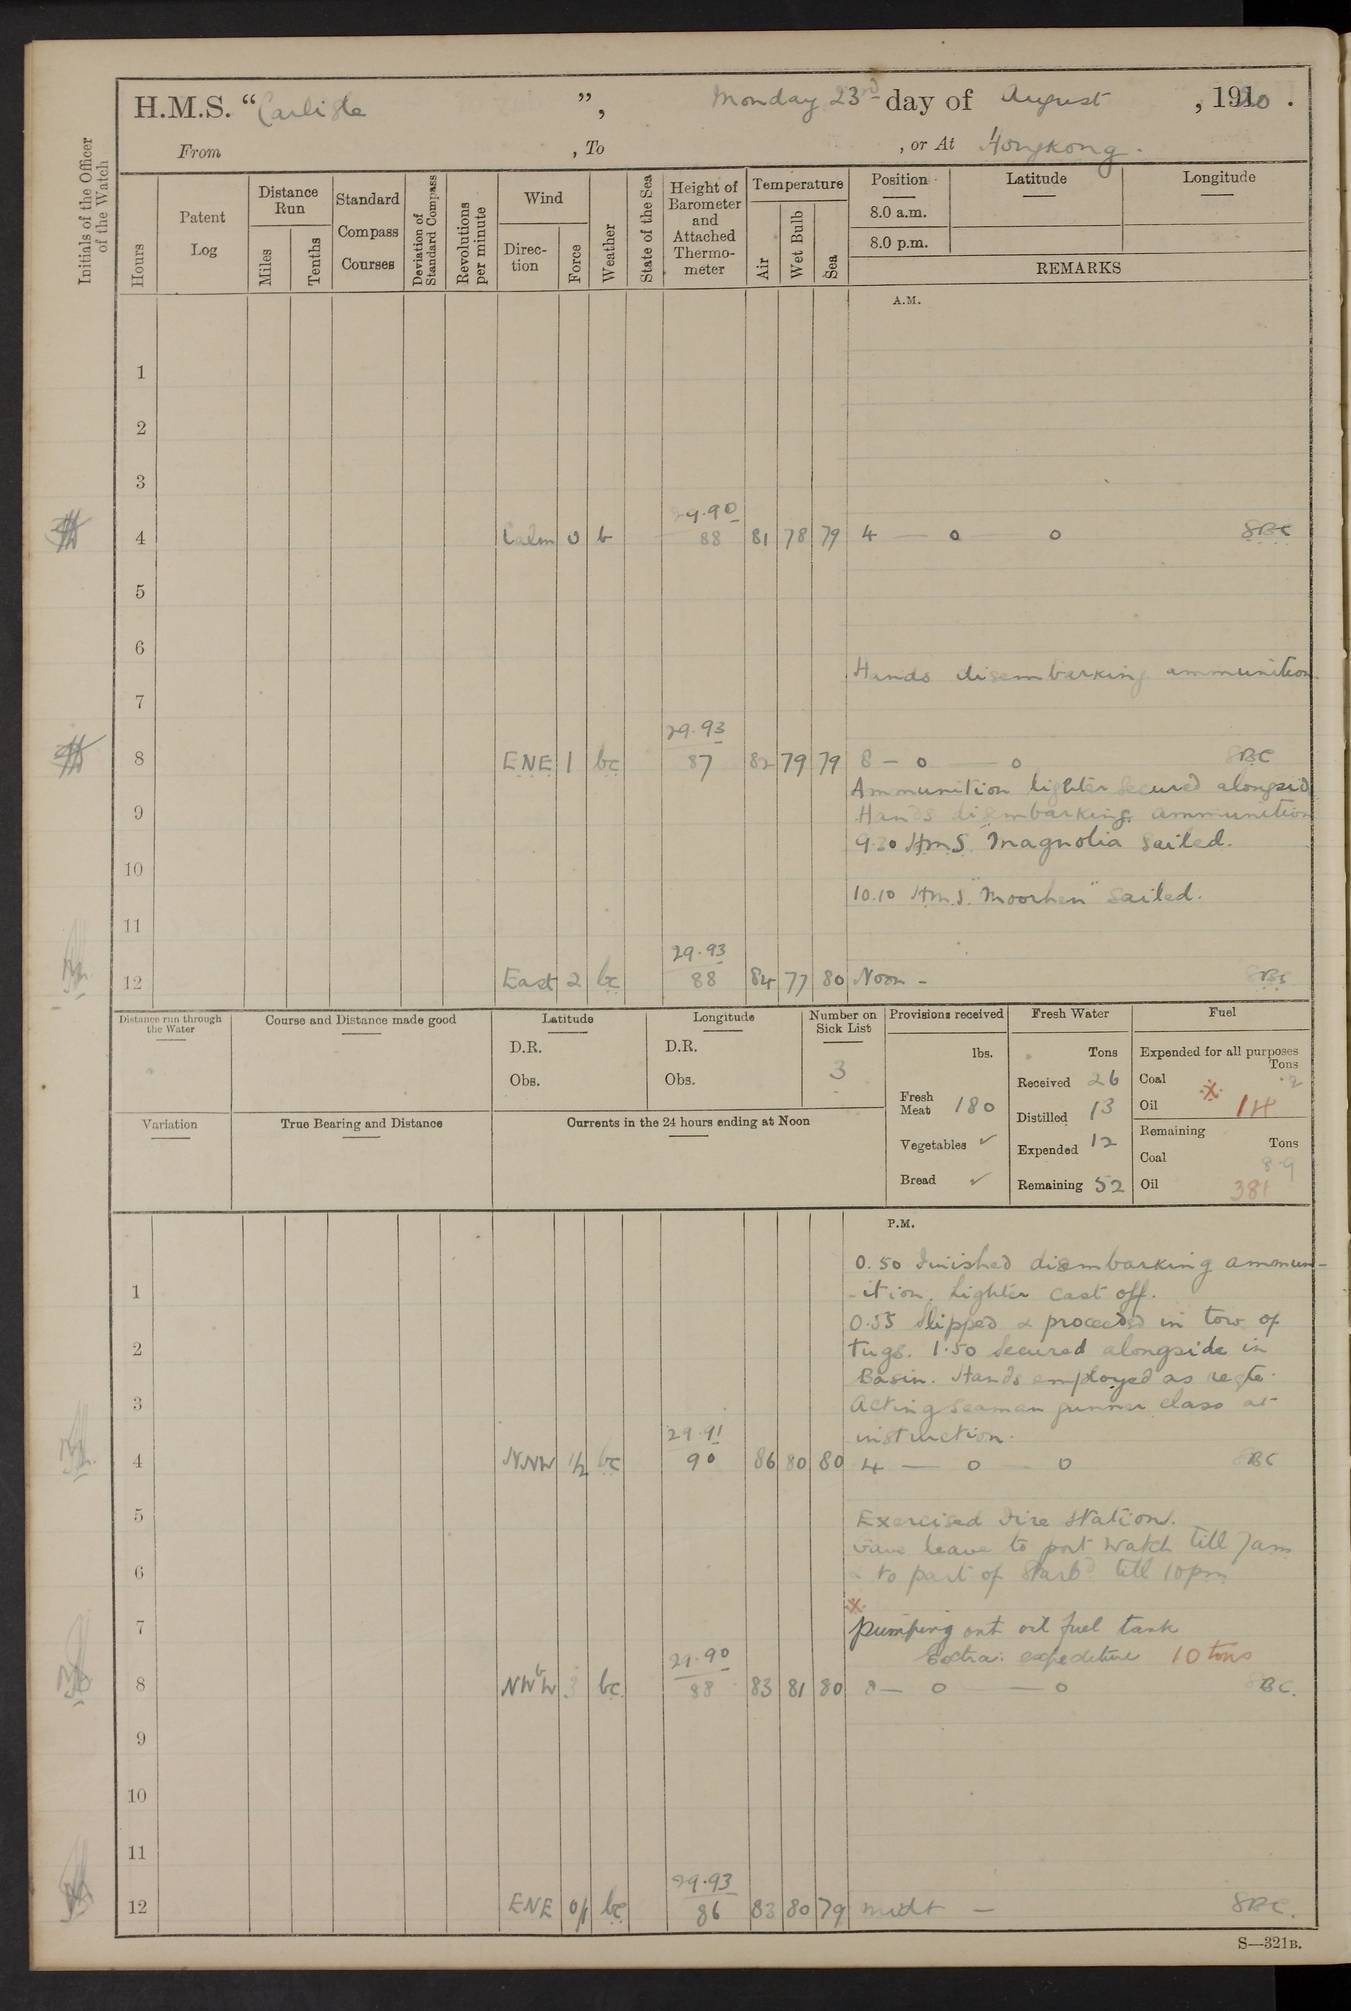 H.M.S. "Carlisle", Monday 23rd day of August, 1920.
From , To , or At Hongkong.
Initials of the Officer of the Watch
Hours
Patent Log
Distance Run
Miles
Tenths
Standard Compass Courses
Deviation of Standard Compass
Revolutions per minute
Wind
Direction
Force
Weather
State of the Sea
Height of Barometer and Attached Thermometer
Temperature
Air
Wet Bulb
Sea
Position Latitude Longitude
8.0 a.m.
8.0 p.m.
REMARKS
A.M.
1
2
3
29.90
4 Calm 0 b 88 81 78 79 4 — 0 0 SBC
5
6
Hands disembarking ammunition
7
29.93
8 ENE 1 bc 87 82 79 79 8 — 0 — 0 SBC
Ammunition lighter secured alongside
9 Hands disembarking ammunition
9.30 H.M.S. Magnolia sailed.
10
10.10 H.M.S. "Moorhen" sailed.
11
29.93
12 East 2 bc 88 84 77 80 Noon - SBC
Distance run through the Water
Course and Distance made good
Latitude
D.R.
Obs.
Longitude
D.R.
Obs.
Number on Sick List
3
Provisions received
lbs.
Fresh Meat 180
Vegetables ✓
Bread ✓
Fresh Water
Tons
Received 26
Distilled 13
Expended 12
Remaining 52
Fuel
Expended for all purposes
Tons
Coal .2
Oil x 14
Remaining
Tons
Coal 8.9
Oil 381
Variation
True Bearing and Distance
Currents in the 24 hours ending at Noon
P.M.
0.50 Finished disembarking ammun-
1 -ition. Lighter cast off.
0.55 Slipped & proceeded in tow of
2 tugs. 1.50 Secured alongside in
Basin. Hands employed as reqte.
3 Acting seaman gunner class at
29.91 instruction.
4 NNW 1/2 bc 90 86 80 80 4 — 0 — 0 SBC
5 Exercised Fire Station.
Gave leave to port watch till 7am
6 & to part of Starbd till 10pm
x
7 Pumping out oil fuel tank
29.90 Extra: expediture 10 tons
8 NWbW 3 bc 88 83 81 80 8 — 0 — 0 SBC.
9
10
11
29.93
12 ENE 0/1 bc 86 83 80 79 midt — SBC.
S—321B.